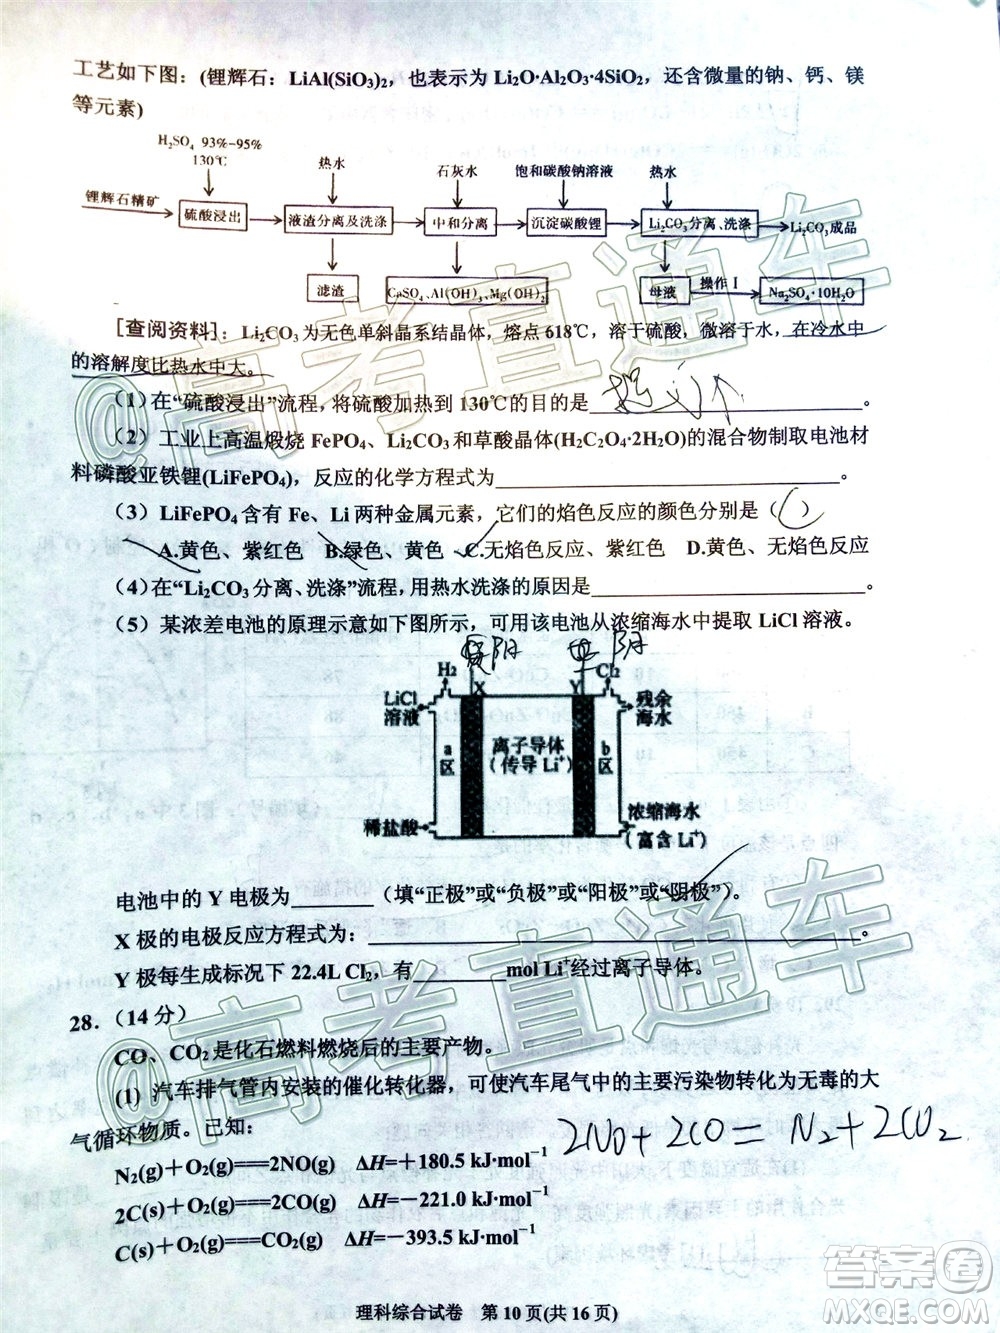 工艺如下图：(锂辉石：LiAl(SiO₃)₂，也表示为 Li₂O·Al₂O₃·4SiO₂，还含微量的钠、钙、镁
等元素)
H₂SO₄ 93%-95%
130℃
热水
石灰水
饱和碳酸钠溶液
热水
锂辉石精矿
硫酸浸出
液渣分离及洗涤
中和分离
沉淀碳酸锂
Li₂CO₃分离、洗涤
Li₂CO₃成品
滤渣
CaSO₄、Al(OH)₃、Mg(OH)₂
母液
操作 I
Na₂SO₄·10H₂O
[查阅资料]：Li₂CO₃为无色单斜晶系结晶体，熔点 618℃，溶于硫酸，微溶于水，在冷水中
的溶解度比热水中大。
（1）在“硫酸浸出”流程，将硫酸加热到 130℃的目的是________。
（2）工业上高温煅烧 FePO₄、Li₂CO₃和草酸晶体(H₂C₂O₄·2H₂O)的混合物制取电池材
料磷酸亚铁锂(LiFePO₄)，反应的化学方程式为________.
（3）LiFePO₄含有 Fe、Li 两种金属元素，它们的焰色反应的颜色分别是（ ）
A.黄色、紫红色 B.绿色、黄色 C.无焰色反应、紫红色 D.黄色、无焰色反应
（4）在“Li₂CO₃分离、洗涤”流程，用热水洗涤的原因是________。
（5）某浓差电池的原理示意如下图所示，可用该电池从浓缩海水中提取 LiCl 溶液。
阴
阴
H₂
X
Y
Cl₂
LiCl
溶液
残余
海水
a
区
离子导体
（传导 Li⁺）
b
区
稀盐酸
浓缩海水
（富含 Li⁺）
电池中的 Y 电极为________（填“正极”或“负极”或“阳极”或“阴极”）。
X 极的电极反应方程式为：________。
Y 极每生成标况下 22.4L Cl₂，有________mol Li⁺经过离子导体。
28．（14 分）
CO、CO₂是化石燃料燃烧后的主要产物。
(1) 汽车排气管内安装的催化转化器，可使汽车尾气中的主要污染物转化为无毒的大
气循环物质。已知：
2NO+2CO=N₂+2CO₂
N₂(g)＋O₂(g)===2NO(g) ΔH=＋180.5 kJ·mol⁻¹
2C(s)＋O₂(g)===2CO(g) ΔH=－221.0 kJ·mol⁻¹
C(s)＋O₂(g)===CO₂(g) ΔH=－393.5 kJ·mol⁻¹
理科综合试卷 第 10 页(共 16 页)
@高考直通车
@高考直通车
答案圈
MXQE.COM